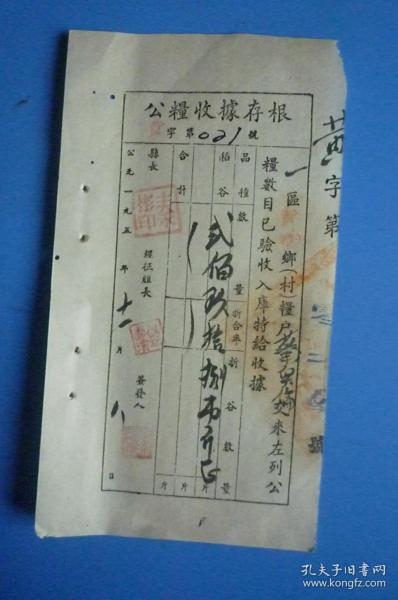 公糧收據存根
字第021號
一區
鄉(村)糧戶
交來左列公
糧數目已驗收入庫特給收據
品種
數量
折合率
折谷數量
稻谷
貳佰玖拾捌市斤正
合計
斤
斤
斤
縣長
經征組長
簽發人
公元一九五
年十一月八日
黄字第
號
孔夫子旧书网
www.kongfz.com